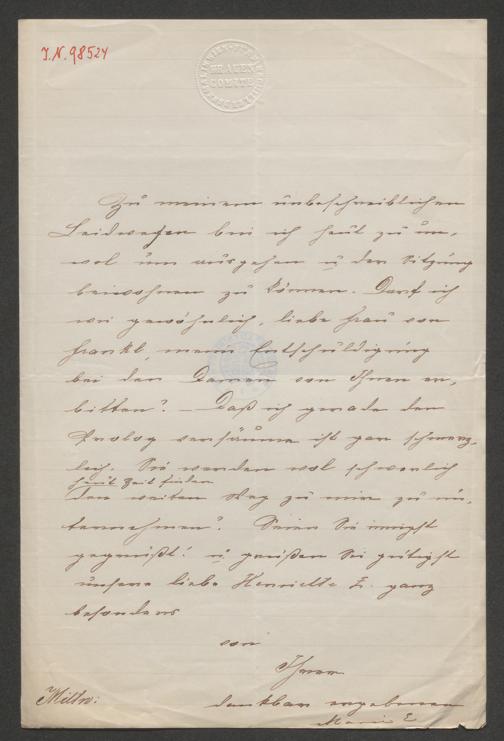 J.N. 98524
FRAUEN
COMITÉ
Zu meinem unbeschreiblichen
Leidwesen bin ich heut zu un-
wol um ausgehen u der Sitzung
beiwohnen zu können. Darf ich
wie gewöhnlich, liebe Frau von
Frankl, meine Entschuldigung
bei den Damen von Ihnen er-
bitten? – Daß ich gerade den
Prolog versäume ist gar schmerz-
lich. Sie werden wol schwerlich
heut Zeit finden
den weiten Weg zu mir zu un-
ternehmen? Seien Sie innigst
gegrüßt! u grüßen Sie gütigst
unsere liebe Henriette E. ganz
besonders
von
Ihrer
dankbar ergebenen
Marie E
Mittw: